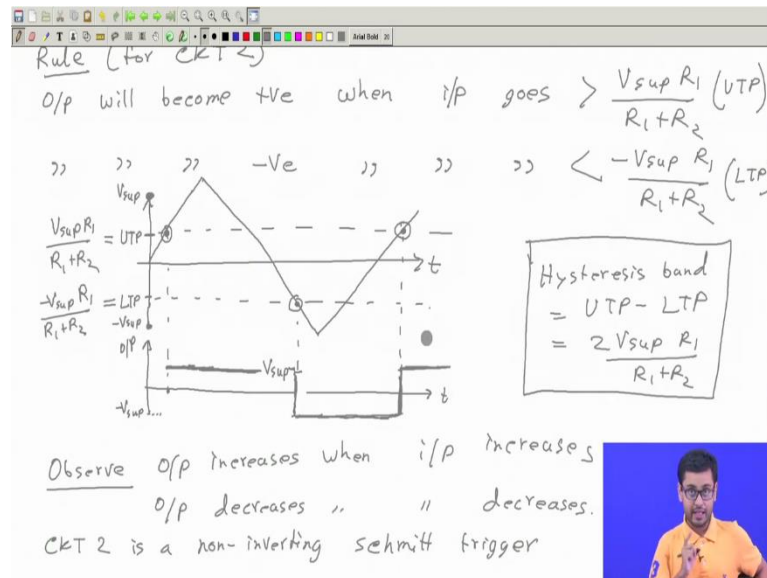 Arial Bold 20
Rule (for CKT 2)
O/P will become +ve when i/p goes > Vsup R1 / R1+R2 (UTP)
,, ,, ,, -Ve ,, ,, ,, < -Vsup R1 / R1+R2 (LTP)
Vsup
Vsup R1 / R1+R2 = UTP
t
-Vsup R1 / R1+R2 = LTP
-Vsup
O/P
Vsup
t
-Vsup ...
Hysteresis band
= UTP - LTP
= 2 Vsup R1 / R1+R2
Observe O/P increases when i/p increases
O/P decreases ,, ,, decreases.
CKT 2 is a non-inverting schmitt trigger